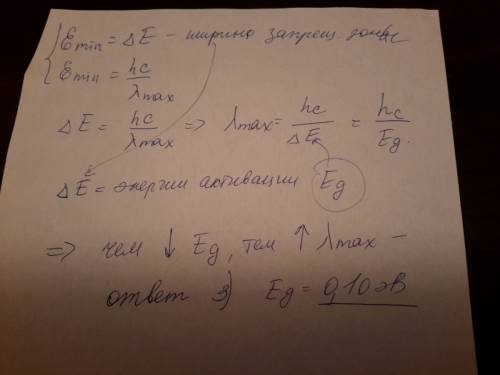 { Emin = ΔE – ширина запрещ. зоны
{ Emin = hc/λmax
ΔE = hc/λmax => λmax = hc/ΔE = hc/Eg.
ΔE = энергии активации Eg
=> чем ↓ Eg, тем ↑ λmax –
ответ 3) Eg = 0,10 эВ